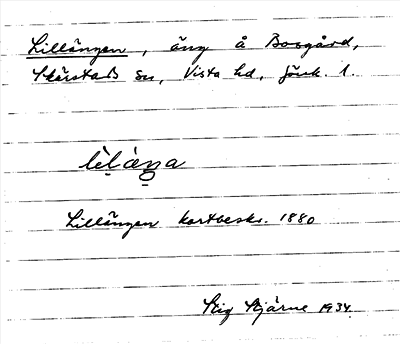 Lillängen, äng å Bosgård,
Skärstad sn, Vista hd, Jönk. l.
Lillängen kartbeskr. 1880
Stig Stjärne 1934.